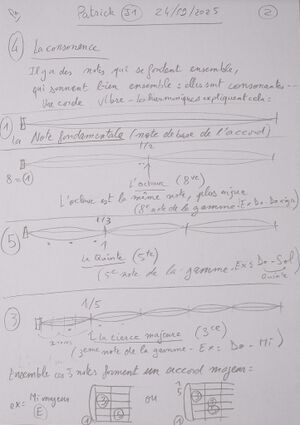 Patrick J1 24/09/2025 2
4 La consonance
Il y a des notes qui se fondent ensemble,
qui sonnent bien ensemble : elles sont consonantes -
Une corde vibre - les harmoniques expliquent cela :
1
La Note fondamentale (note de base de l'accord)
1/2
8 = 1
L'octave (8ve)
L'octave est la même note, plus aigue
(8e note de la gamme : Ex Do - Do aigu)
1/3
5
La Quinte (5te)
(5e note de la gamme. Ex : Do - Sol)
Quinte
1/5
3
La tierce majeure (3ce)
(3ème note de la gamme - Ex : Do - Mi)
Ensemble ces 3 notes forment un accord majeur :
ex : Mi majeur ou
(E)
3
5
1
1
5
3
5
1